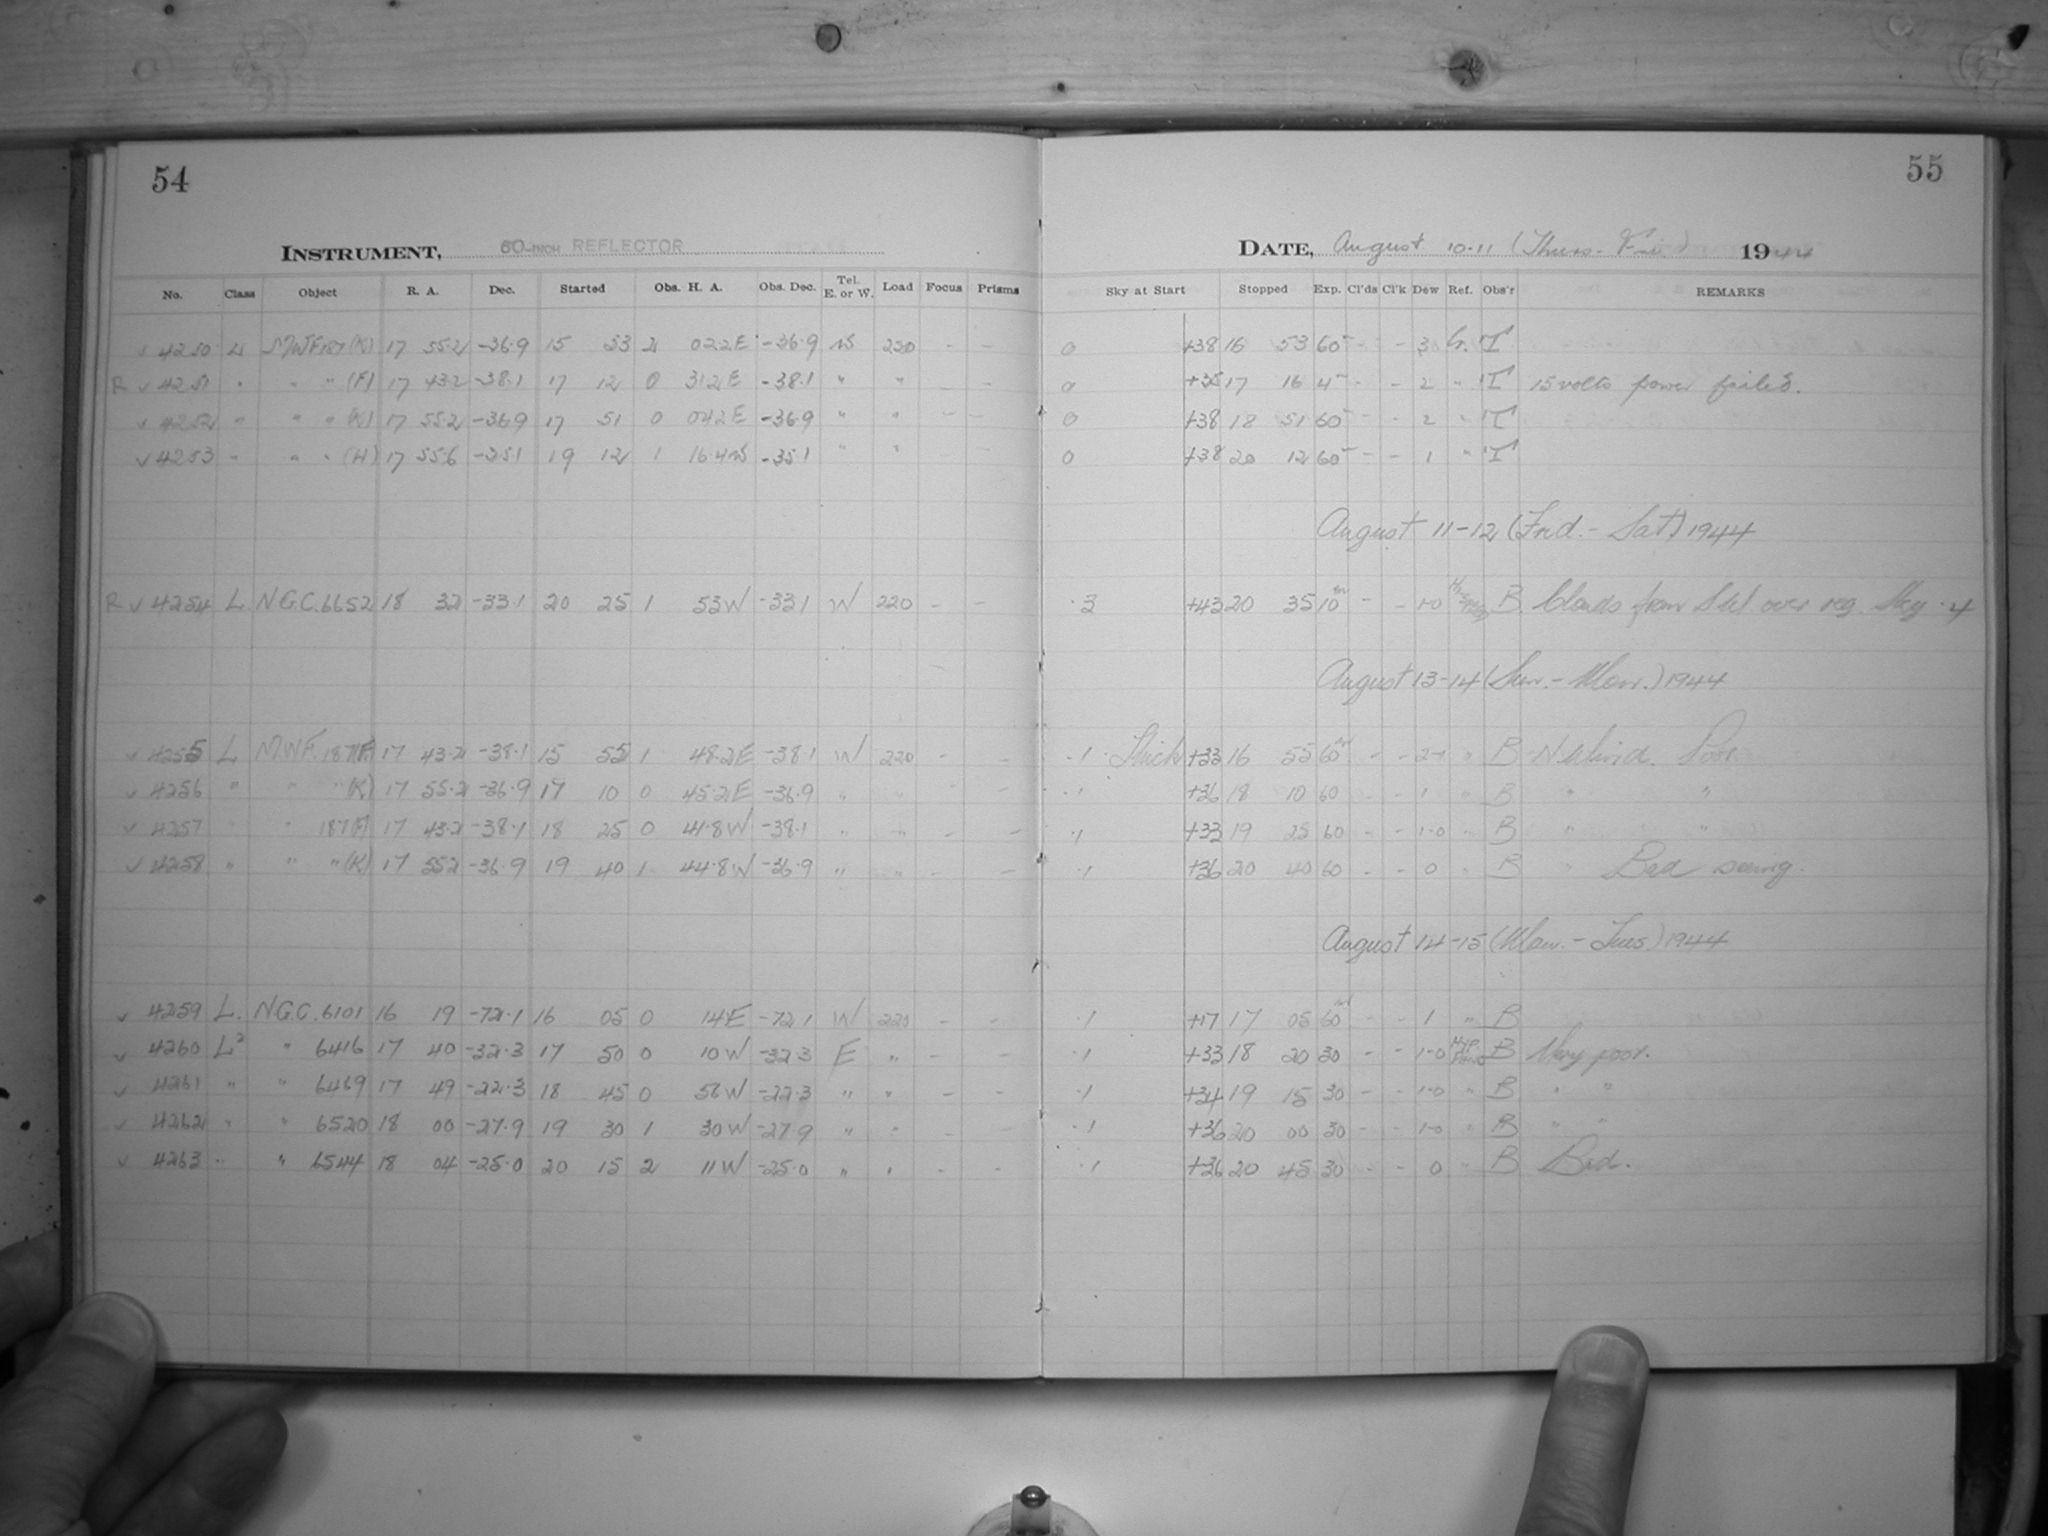 54
55
INSTRUMENT, 60-INCH REFLECTOR
DATE, August 10-11 (Thurs- Fri.) 1944
No. Class Object R. A. Dec. Started Obs. H. A. Obs. Dec. Tel. E. or W. Load Focus Prisms Sky at Start Stopped Exp. Cl'ds Cl'k Dew Ref. Obs'r REMARKS
✓ 4250 L MWF187(K) 17 55.2 -36.9 15 53 2 02.2E -36.9 W 220 - - 0 +38 16 53 60 - - 3 T
R ✓ 4251 " " " (F) 17 43.2 -38.1 17 12 0 31.2E -38.1 " " - - 0 +35 17 16 4 - - 2 " T 15 volts power failed.
✓ 4252 " " " (K) 17 55.2 -36.9 17 51 0 04.2E -36.9 " " - - 0 +38 18 51 60 - - 2 " T
✓ 4253 " " " (H) 17 55.6 -35.1 19 12 1 16.4W -35.1 " " - - 0 +38 20 12 60 - - 1 " T
August 11-12 (Frid. - Sat) 1944
R ✓ 4254 L NGC.6652 18 32 -33.1 20 25 1 53W -33.1 W 220 - - .3 +43 20 35 10m - - 1-0 B Clouds from SW over reg. Sky .4
August 13-14 (Sun. - Mon.) 1944
✓ 4255 L MWF.187(F) 17 43.2 -38.1 15 55 1 48.2E -38.1 W 220 - - .1 Thick +33 16 55 60m - - 2-1 " B N Wind. Poor
✓ 4256 " " " (K) 17 55.2 -36.9 17 10 0 45.2E -36.9 " " - - .1 +36 18 10 60 - - 1 " B " "
✓ 4257 " " 187(F) 17 43.2 -38.1 18 25 0 41.8W -38.1 " " - - .1 +33 19 25 60 - - 1-0 " B " "
✓ 4258 " " " (K) 17 55.2 -36.9 19 40 1 44.8W -36.9 " " - - .1 +36 20 40 60 - - 0 " B " Bad seeing.
August 14-15 (Mon. - Tues.) 1944
✓ 4259 L. NGC.6101 16 19 -72.1 16 05 0 14E -72.1 W 220 - - .1 +17 17 05 60m - - 1 " B
✓ 4260 L² " 6416 17 40 -32.3 17 50 0 10W -32.3 E " - - .1 +33 18 20 30 - - 1-0 B Very poor.
✓ 4261 " " 6469 17 49 -22.3 18 45 0 56W -22.3 " " - - .1 +34 19 15 30 - - 1-0 " B " "
✓ 4262 " " 6520 18 00 -27.9 19 30 1 30W -27.9 " " - - .1 +36 20 00 30 - - 1-0 " B " "
✓ 4263 " " 6544 18 04 -25.0 20 15 2 11W -25.0 " " - - .1 +36 20 45 30 - - 0 " B Bad.